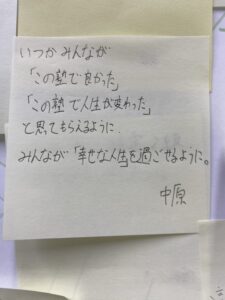 いつか みんなが
「この塾で良かった」
「この塾で人生が変わった」
と思ってもらえるように.
みんなが「幸せな人生」を過ごせるように。
中原